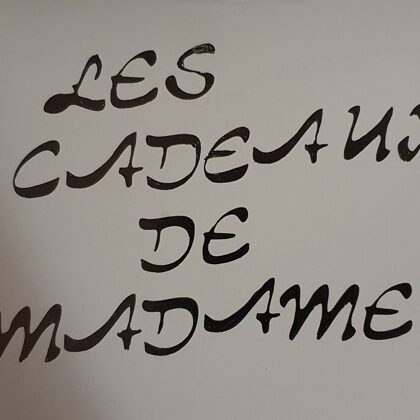 LES
CADEAUX
DE
MADAME